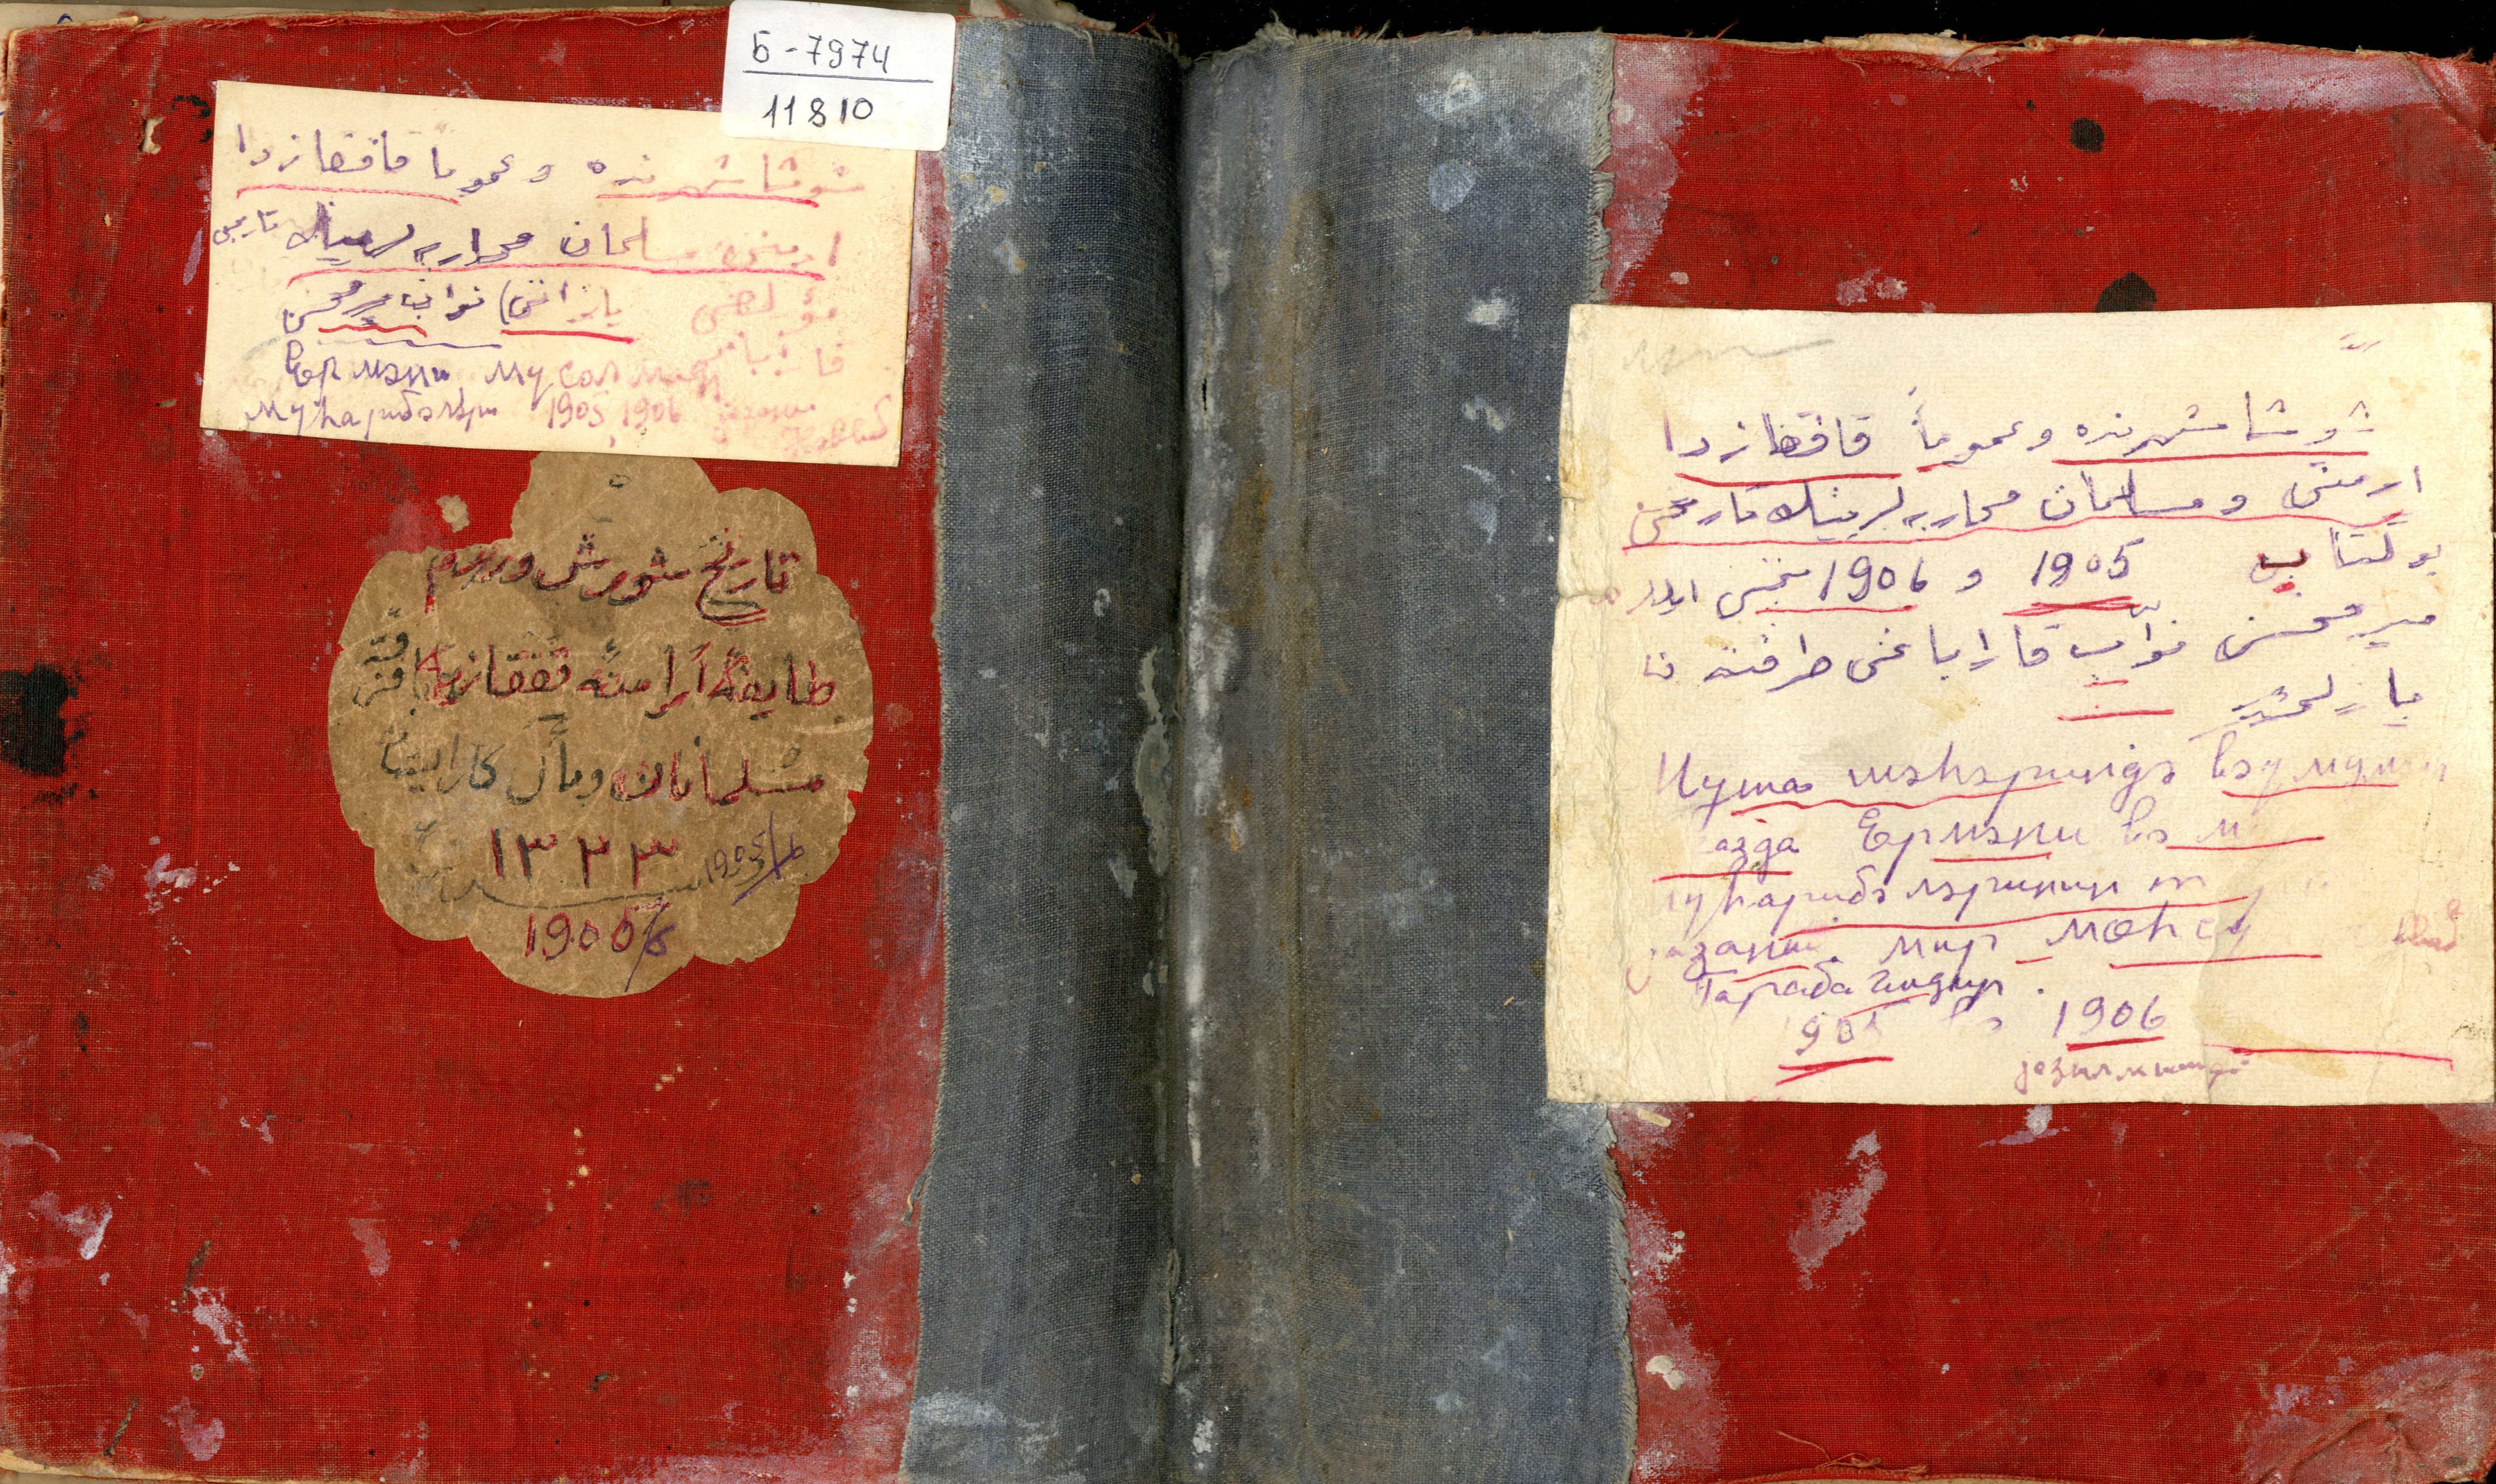 Б-7974
11810
شوشا شهرنده و عموماً قافقازدا
ارمنی مسلمان محاربه لرینیڭ تاریخی
مؤلفی یازانی) نواب میرمحسن
قاراباغی
Ермәни мусолман
муһарибәләри 1905, 1906 јазаны
Нәвваб
تاریخ شورش و
طایفهٔ ارامنهٔ قفقاز با فرقهٔ
مسلمانان ومآل کار ایشان
۱۳۲۳ 1905/6
1905/6
شوشا شهرنده و عموماً قافقازدا
ارمنی و مسلمان محاربه لرینیڭ تاریخی
بو کتاب 1905 و 1906 نجی
میر محسن نواب قاراباغی طرفندن
یازلمشدر
Шуша шәһәриндә вә умуми
газда Ермәни вә м
муһарибәләринин т
јазаны мир мөһсү Нәвваб
Гарабағидир.
1905 вә 1906
јазылмышдыр